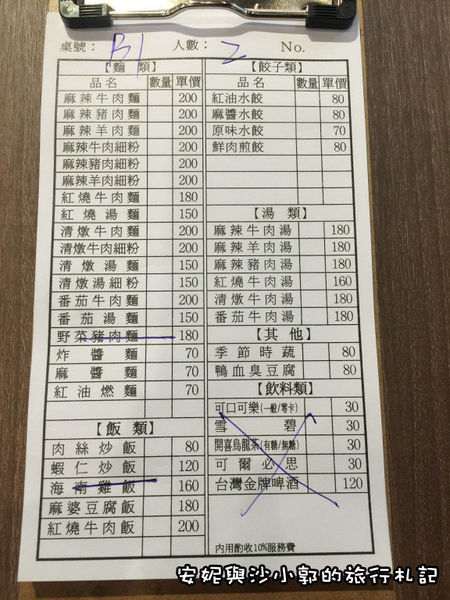 桌號： B1 人數： 2 No.
【麵 類】
品 名 數量 單價
麻辣牛肉麵 200
麻辣豬肉麵 200
麻辣羊肉麵 200
麻辣牛肉細粉 200
麻辣豬肉細粉 200
麻辣羊肉細粉 200
紅燒牛肉麵 180
紅燒湯麵 150
清燉牛肉麵 200
清燉牛肉細粉 200
清燉湯麵 150
清燉湯細粉 150
番茄牛肉麵 200
番茄湯麵 150
野菜豬肉麵 180
炸醬麵 70
麻醬麵 70
紅油燃麵 70
【飯 類】
肉絲炒飯 80
蝦仁炒飯 120
海南雞飯 160
麻婆豆腐飯 180
紅燒牛肉飯 200
【餃子類】
品 名 數量 單價
紅油水餃 80
麻醬水餃 80
原味水餃 70
鮮肉煎餃 80
【湯 類】
麻辣牛肉湯 180
麻辣羊肉湯 180
麻辣豬肉湯 180
紅燒牛肉湯 160
清燉牛肉湯 180
番茄牛肉湯 180
【其 他】
季節時蔬 80
鴨血臭豆腐 80
【飲料類】
可口可樂(一般/零卡) 30
雪碧 30
開喜烏龍茶(有糖/無糖) 30
可爾必思 30
台灣金牌啤酒 120
內用酌收10%服務費
安妮與沙小郭的旅行札記